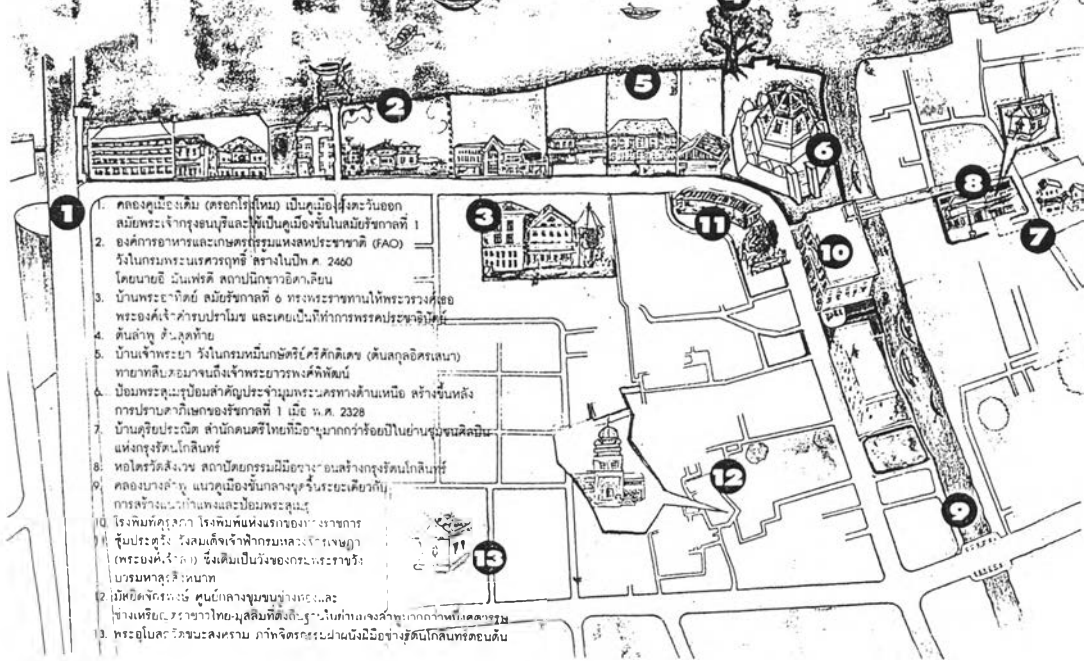 1. คลองคูเมืองเดิม (ตรอกโรงไหม) เป็นคูเมืองฝั่งตะวันออก
สมัยพระเจ้ากรุงธนบุรีและใช้เป็นคูเมืองชั้นในสมัยรัชกาลที่ 1
2. องค์การอาหารและเกษตรกรรมแห่งสหประชาชาติ (FAO)
วังในกรมพระนเรศวรฤทธิ์ สร้างในปีพ.ศ. 2460
โดยนายอี มันเฟรดี สถาปนิกชาวอิตาเลียน
3. บ้านพระอาทิตย์ สมัยรัชกาลที่ 6 ทรงพระราชทานให้พระวรวงศ์เธอ
พระองค์เจ้าคำรบปราโมช และเคยเป็นที่ทำการพรรคประชาธิปัตย์
4. ต้นลำพู ต้นสุดท้าย
5. บ้านเจ้าพระยา วังในกรมหมื่นกษัตริย์ศรีศักดิเดช (ต้นสกุลอิศรเสนา)
ทายาทสืบต่อมาจนถึงเจ้าพระยาวรพงศ์พิพัฒน์
6. ป้อมพระสุเมรุป้อมสำคัญประจำมุมพระนครทางด้านเหนือ สร้างขึ้นหลัง
การปราบดาภิเษกของรัชกาลที่ 1 เมื่อ พ.ศ. 2328
7. บ้านดุริยประณีต สำนักดนตรีไทยที่มีอายุมากกว่าร้อยปีในย่านชุมชนศิลปิน
แห่งกรุงรัตนโกสินทร์
8. หอไตรวัดสังเวช สถาปัตยกรรมฝีมือช่างตอนสร้างกรุงรัตนโกสินทร์
9. คลองบางลำพู แนวคูเมืองชั้นกลางขุดขึ้นระยะเดียวกับ
การสร้างแนวกำแพงและป้อมพระสุเมรุ
10. โรงพิมพ์คุรุสภา โรงพิมพ์แห่งแรกของทางราชการ
11. ซุ้มประตูวัง วังสมเด็จเจ้าฟ้ากรมหลวงจักรเจษฎา
(พระองค์เจ้าลา) ซึ่งเดิมเป็นวังของกรมพระราชวัง
บวรมหาสุรสิงหนาท
12. มัสยิดจักรพงษ์ ศูนย์กลางชุมชนช่างทองและ
ช่างเหรียญตราชาวไทย-มุสลิมที่ตั้งถิ่นฐานในย่านบางลำพูมากกว่าหนึ่งศตวรรษ
13. พระอุโบสถวัดชนะสงคราม ภาพจิตรกรรมฝาผนังฝีมือช่างรัตนโกสินทร์ตอนต้น
1
2
3
5
6
7
8
9
10
11
12
13